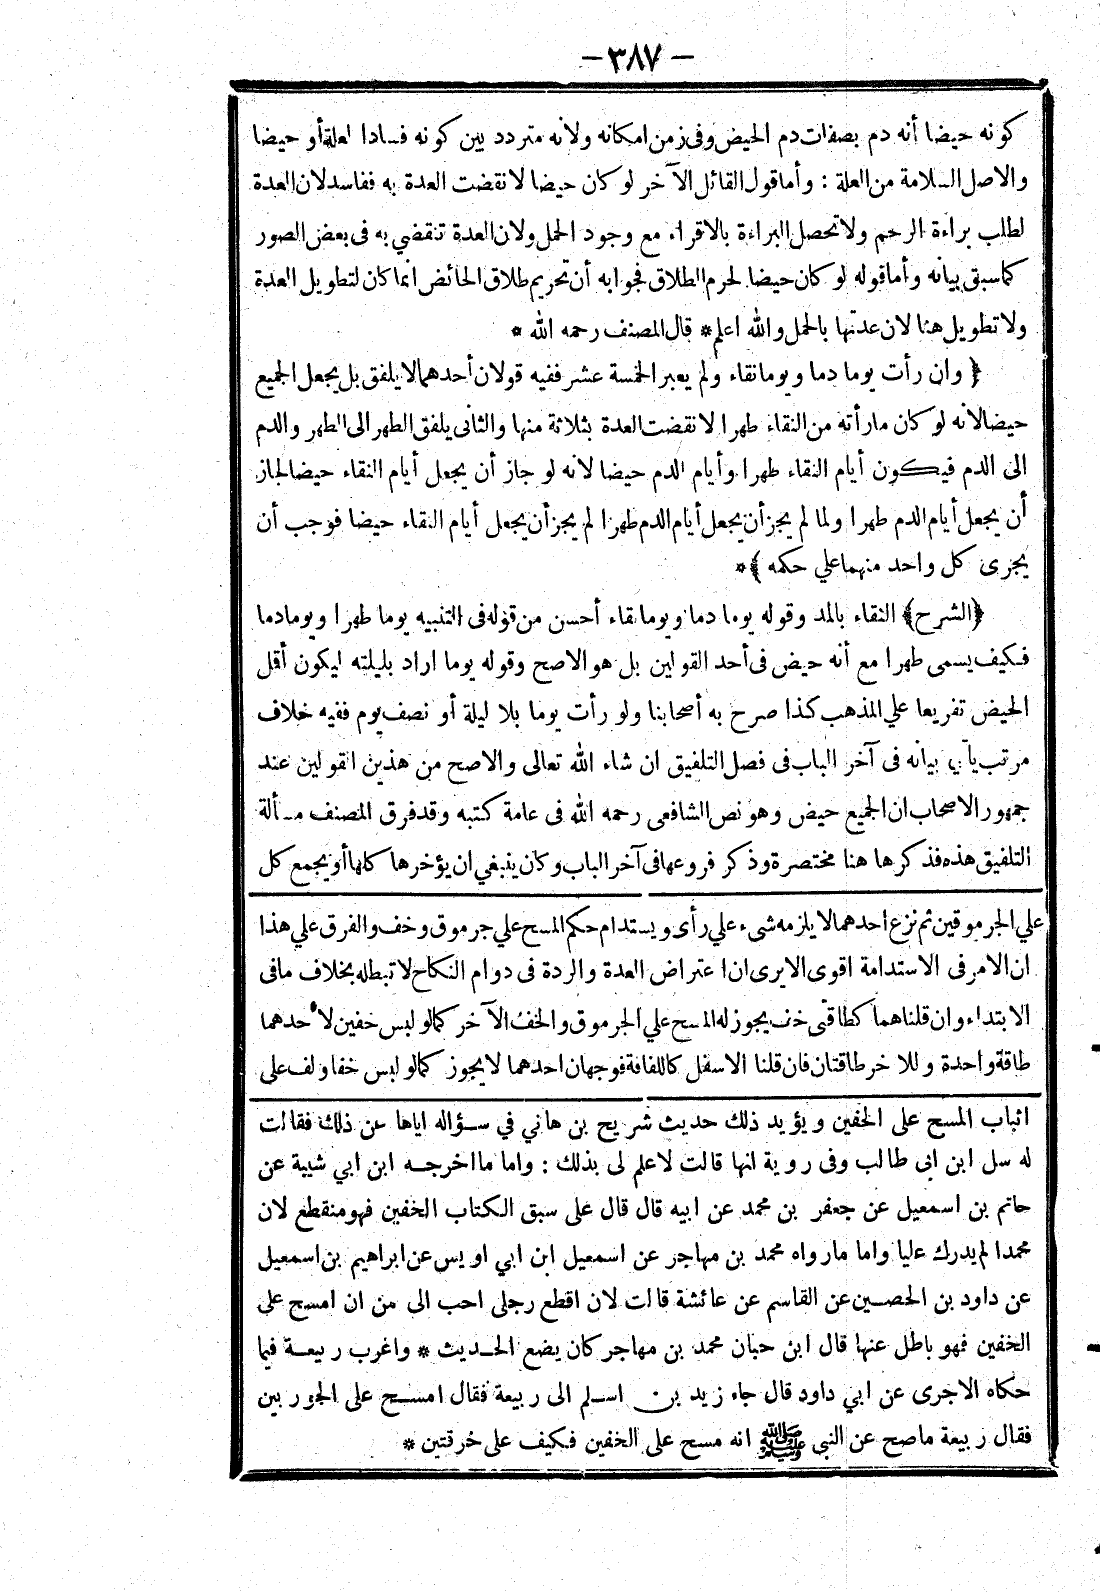 -٣٨٧-
كونه حيضا أنه دم بصفات دم الحيض وفى زمن امكانه ولأنه متردد بين كونه فسادا لعلة أو حيضا
والاصل السلامة من العلة : وأما قول القائل الآخر لو كان حيضا لانقضت العدة به ففاسد لان العدة
لطلب براءة الرحم ولا تحصل البراءة بالاقراء مع وجود الحمل ولان العدة تنقضي به فى بعض الصور
كما سبق بيانه وأما قوله لو كان حيضا لحرم الطلاق فجوابه أن تحريم طلاق الحائض انما كان لتطويل العدة
ولا تطويل هنا لان عدتها بالحمل والله اعلم * قال المصنف رحمه الله *
﴿ وان رأت يوما دما ويوما نقاء ولم يعبر الخمسة عشر ففيه قولان أحدهما لا يلفق بل يجعل الجميع
حيضا لانه لو كان ما رأته من النقاء طهرا لانقضت العدة بثلاثة منها والثانى يلفق الطهر الى الطهر والدم
الى الدم فيكون أيام النقاء طهرا وأيام الدم حيضا لانه لو جاز أن يجعل أيام النقاء حيضا لجاز
أن يجعل أيام الدم طهرا ولما لم يجز أن يجعل أيام الدم طهرا لم يجز أن يجعل أيام النقاء حيضا فوجب أن
يجرى كل واحد منهما علي حكمه ﴾*
﴿الشرح﴾ النقاء بالمد وقوله يوما دما ويوما نقاء أحسن من قوله فى التنبيه يوما طهرا ويوما دما
فكيف يسمى طهرا مع أنه حيض فى أحد القولين بل هو الاصح وقوله يوما اراد بليلته ليكون أقل
الحيض تفريعا علي المذهب كذا صرح به أصحابنا ولو رأت يوما بلا ليلة أو نصف يوم ففيه خلاف
مرتب يأتى بيانه فى آخر الباب فى فصل التلفيق ان شاء الله تعالى والاصح من هذين القولين عند
جمهور الاصحاب ان الجميع حيض وهو نص الشافعى رحمه الله فى عامة كتبه وقد فرق المصنف مسألة
التلفيق هذه فذكرها هنا مختصرة وذكر فروعها فى آخر الباب وكان ينبغي ان يؤخرها كلها أو يجمع كل
علي الجرموقين ثم نزع احدهما لا يلزمه شىء علي رأى ويستدام حكم المسح علي جرموق وخف والفرق علي هذا
ان الامر فى الاستدامة اقوى الا يرى ان اعتراض العدة والردة فى دوام النكاح لا تبطله بخلاف ما فى
الابتداء وان قلنا هما كطاقتى خف يجوز له المسح علي الجرموق والخف الآخر كما لو لبس خفين لأحدهما
طاقة واحدة وللاخر طاقتان فان قلنا الاسفل كاللفافة فوجهان احدهما لا يجوز كما لو لبس خفا ولف على
اثباب المسح على الخفين ويؤيد ذلك حديث شريح بن هاني في سؤاله اياها عن ذلك فقالت
له سل ابن ابى طالب وفى روية انها قالت لا علم لى بذلك : واما ما اخرجه ابن ابي شيبة عن
حاتم بن اسمعيل عن جعفر بن محمد عن ابيه قال قال على سبق الكتاب الخفين فهو منقطع لان
محمدا لم يدرك عليا واما ما رواه محمد بن مهاجر عن اسمعيل ابن ابي اويس عن ابراهيم بن اسمعيل
عن داود بن الحصين عن القاسم عن عائشة قالت لان اقطع رجلى احب الى من ان امسح على
الخفين فهو باطل عنها قال ابن حبان محمد بن مهاجر كان يضع الحديث * واغرب ربيعة فيما
حكاه الاجرى عن ابي داود قال جاء زيد بن اسلم الى ربيعة فقال امسح على الجوربين
فقال ربيعة ما صح عن النبي ﷺ انه مسح على الخفين فكيف على خرقتين *